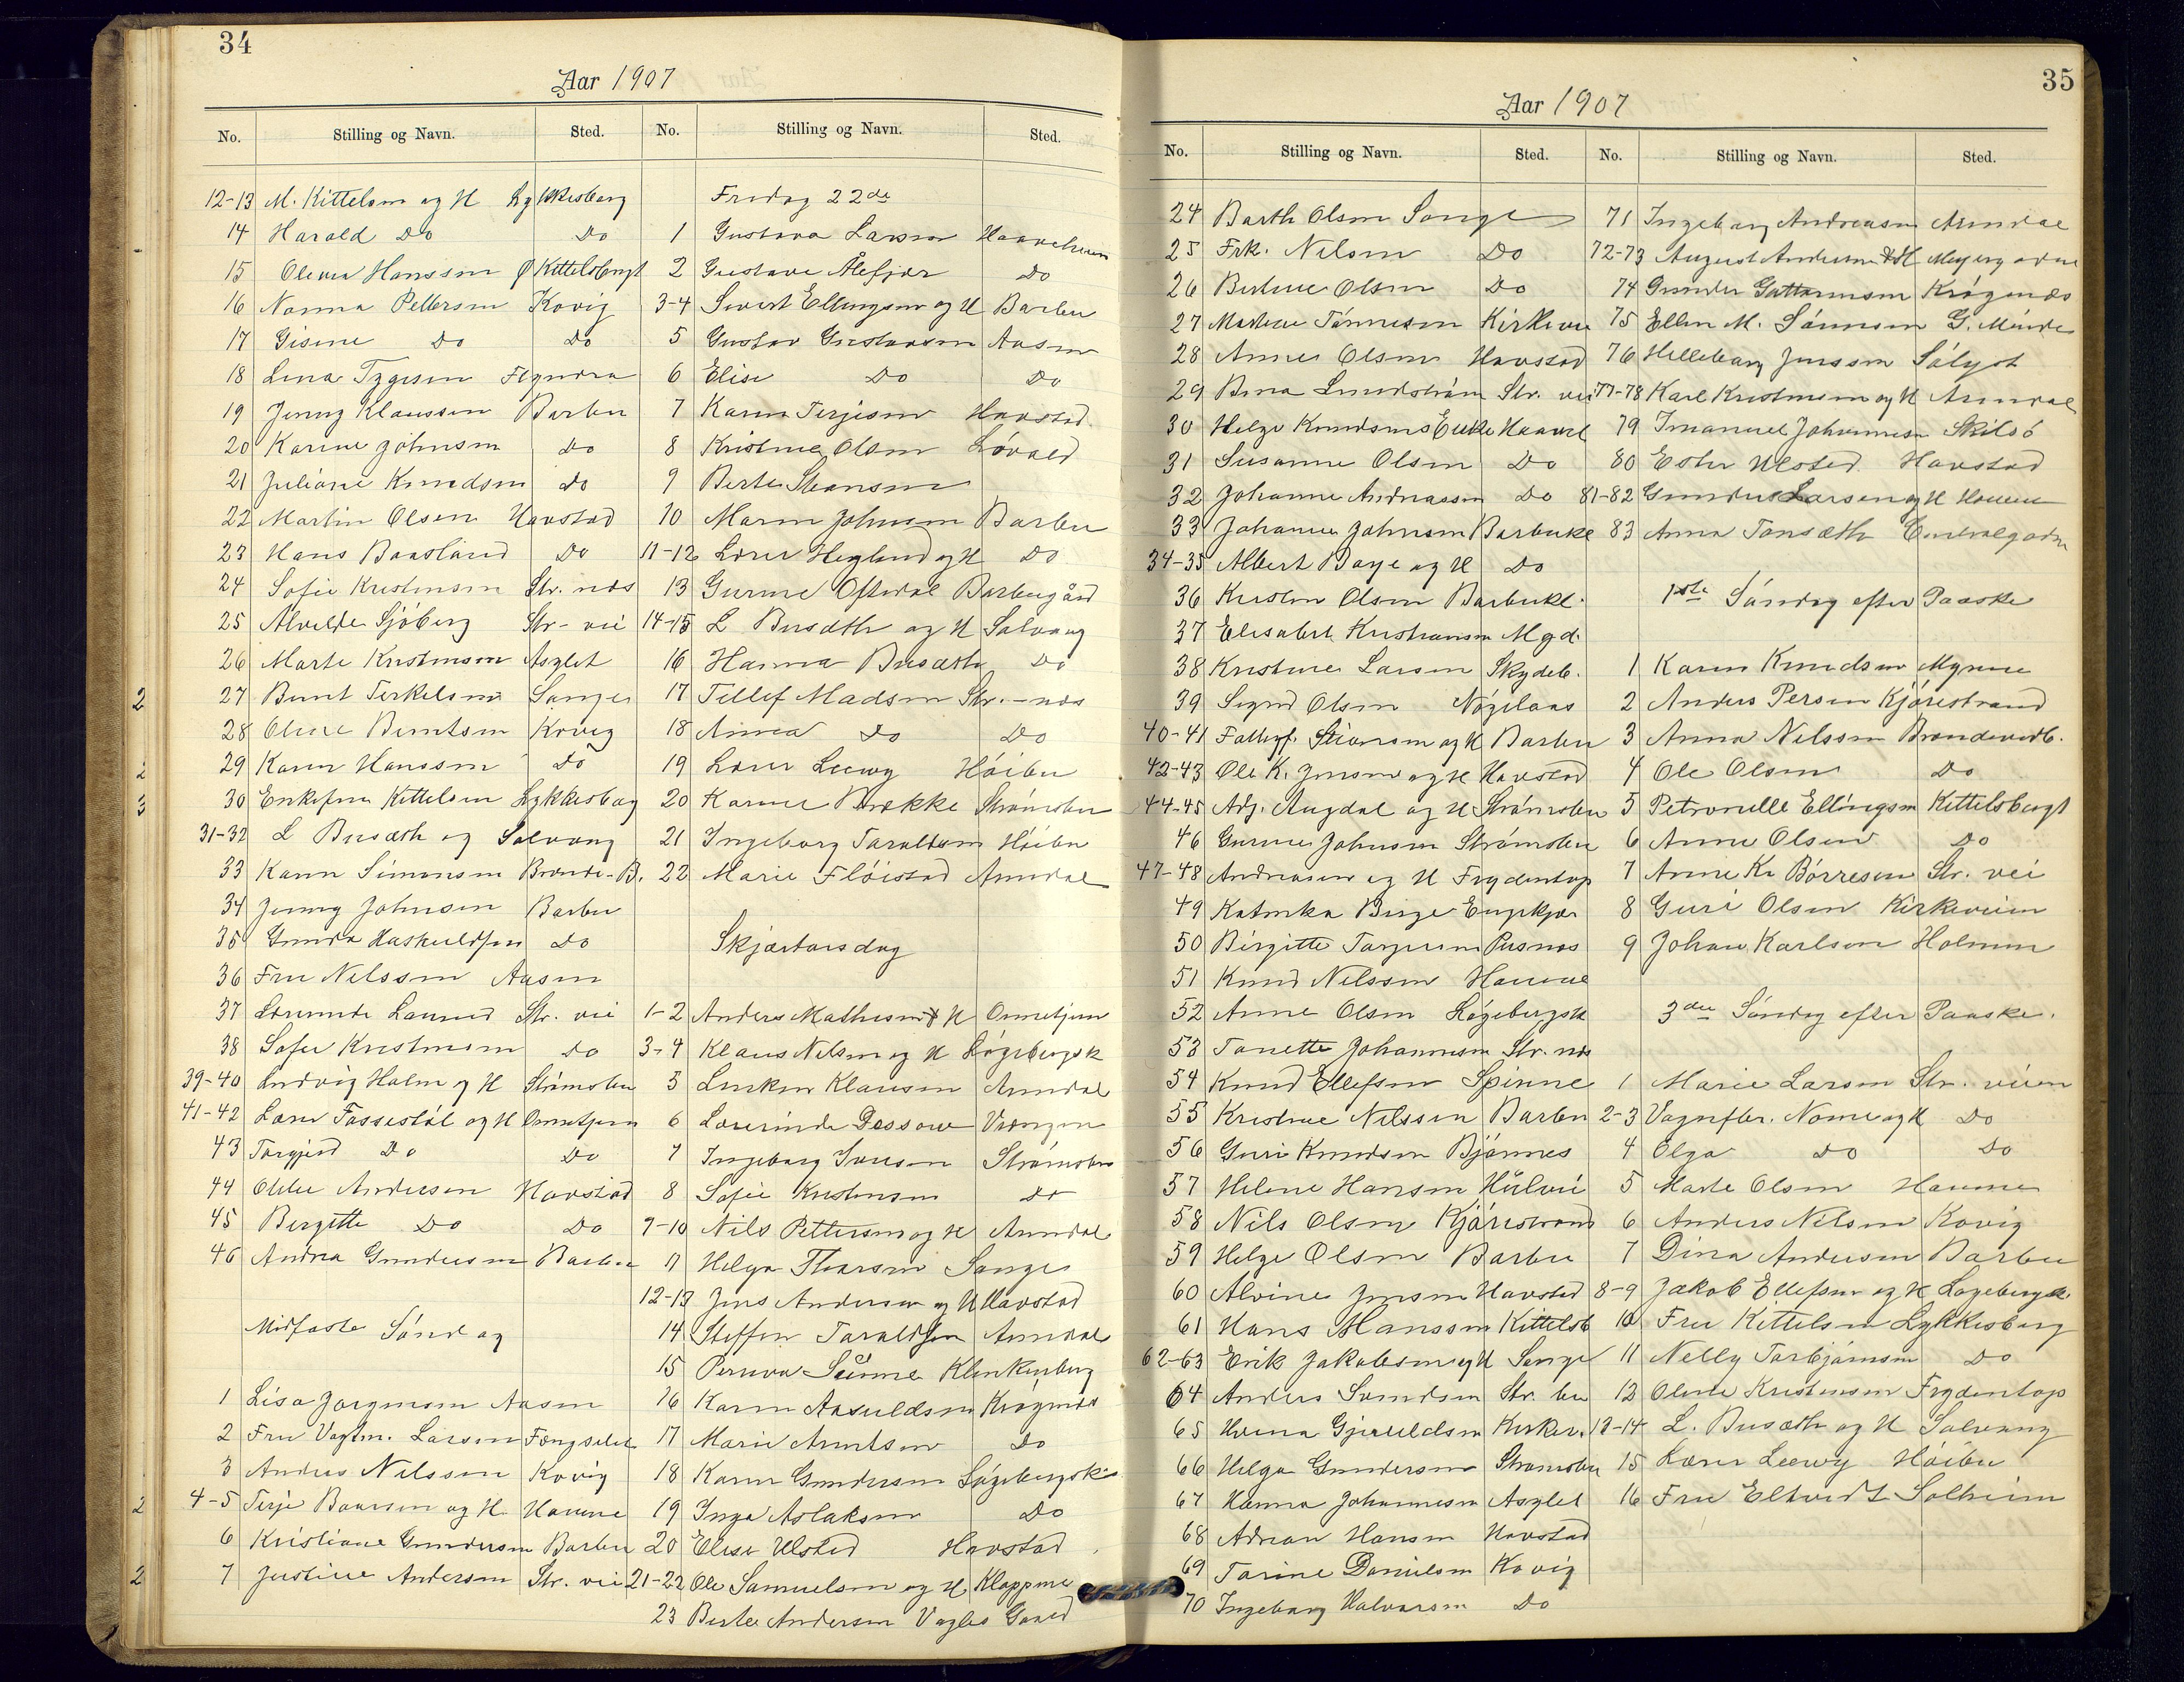 34
Aar 1907
No. Stilling og Navn. Sted. No. Stilling og Navn. Sted.
12-13 M. Kittelsen og H Lykkesberg
14 Harald Do Do
15 Hanssen Kittelsbugt
16 Nanna Pettersen Kovig
17 Gisine Do Do
18 Lina
19 Jenny Klaussen Barbu
20 Karine Johnsen Do
21 Juliane Knudsen Do
22 Martin Olsen Havstad
23 Hans Baasland Do
24 Sofie Kristensen Str. næs
25 Alvilde Sjöberg Str- vei
26 Marte Kristensen Asylet
27 Bernt Terkelsen Songe
28 Oline Berntsen Kovig
29 Karen Hanssen Do
30 Kittelsen Lykkesbag
31-32 L Busæth og Solvang
33 Karen Simonsen Brænde-B.
34 Jenny Johnsen Barbu
35 Gunda Do
36 Fru Nilssen Aasen
37 Str. vei
38 Sofie Kristensen Do
39-40 Ludvig Holm og H Strømsbu
41-42 Lærer og H
43 Torgjerd Do Do
44 Andersen Havstad
45 Birgitte Do Do
46 Andrea Gundersen Barbu
Midfaste Søndag
1 Lisa Jørgensen Aasen
2 Fru Vagtm. Larsen Fængselet
3 Anders Nilssen Kovig
4-5 Terje Baarsen og H.
6 Kristiane Gundersen Barbu
7 Justine Andersen Str. vei
Fredag 22de
1 Gustava Larsen
2 Gustave Do
3-4 Sivert Ellingsen og H Barbu
5 Gustav Gustavsen Aasen
6 Elise Do Do
7 Karen Terjesen Havstad.
8 Kristine Olsen
9 Berte
10 Maren Johnsen Barbu
11-12 Lærer Heglund og H Do
13 Gurine Barbugård
14-15 L Busæth og H Solvang
16 Hanna Busæth Do
17 Tellef Madsen Str.-næs
18 Anna Do Do
19 Lærer Leewy Høibu
20 Karine Brække Strømsbu
21 Ingeborg Taraldsen Høibu
22 Marie Fløistad Arendal
Skjærtorsdag
1-2 Anders Mathisen & H
3-4 Klaus Nilsen og H Løgebergsk
5 Klausen Arendal
6
7 Ingeborg Strømsbu
8 Sofie Kristensen Do
9-10 Nils Pettersen og H Arendal
11 Helga Songe
12-13 Jens Andersen og H Havstad
14 Steffen Taraldsen Arendal
15 Klinkenberg
16 Karen Krøgenæs
17 Marie Arntsen Do
18 Karen Gundersen Løgebergsk
19 Inga Aslaksen Do
20 Elise Ulsted Havstad
21-22 Ole Samuelsen og H
23 Berte Andersen
35
Aar 1907
No. Stilling og Navn. Sted. No. Stilling og Navn. Sted.
24 Barth Olsen Songe
25 Frk. Nilsen Do
26 Olsen Do
27 Kirkevei
28 Anne Olsen Havstad
29 Lundstrøm Str. vei
30 Helge Knudsens Enke
31 Susanne Olsen Do
32 Johanne Andreassen Do
33 Johanne Johnsen Barbukl
34-35 Albert Boye og H Do
36 Kirsten Olsen Barbukl.
37 Elisabet Kristiansen
38 Kristine Larsen Skydeb.
39 Sigrid Olsen
40-41 og H Barbu
42-43 Ole K. Jensen og H Havstad
44-45 Adj. Augdal og H Strømsbu
46 Gurine Johnsen Strømsbu
47-48 Andreasen og H Frydentop
49 Katrika
50 Birgitte Torjusen Pusnæs
51 Knud Nilssen
52 Anne Olsen Løgebergsk
53 Tonette Johannesen Str. næs
54 Knud Ellefsen Spinne
55 Kristine Nilssen Barbu
56 Guri Knudsen Bjønnes
57 Helene Hansen
58 Nils Olsen Kjørestrand
59 Helge Olsen Barbu
60 Alvine Jensen Havstad
61 Hans Hanssen Kittelsb
62-63 Erik Jakobsen og H Songe
64 Anders Svendsen Str. bu
65
66 Helga Gundersen Strømsbu
67 Hanna Johannesen Asylet
68 Adrian Hansen Havstad
69 Tarine Danielsen Kovig
70 Ingeborg Halvorsen Do
71 Ingeborg Andreasen Arendal
72-73 August Andersen & H
74 Gunder Guttormsen Krøgenæs
75 Ellen M. Sønnesen
76 Jenssen Sølyst
77-78 Karl Kristensen og H Arendal
79 Imanuel Johannesen Skilsö
80 Ester Ulsted Havstad
81-82 Gunder Larsen og H
83 Anna Tonsæth
1ste Søndag efter Paaske
1 Karen Knudsen Myrene
2 Anders Persen Kjørestrand
3 Anna Nilssen
4 Ole Olsen Do
5 Petronelle Ellingsen Kittelsbugt
6 Anne Olsen Do
7 Anne Kr Börresen Str. vei
8 Guri Olsen Kirkeveien
9 Johan Karlsen Holmen
3die Søndag efter Paaske.
1 Marie Larsen Str. veien
2-3 Vognfbr. Nome og H Do
4 Olga Do Do
5 Marte Olsen
6 Anders Nilsen Kovig
7 Dina Andersen Barbu
8-9 Jakob Ellefsen og H Løgebergsk.
10 Fru Kittelsen Lykkesberg
11 Nelly Torbjørnsen Do
12 Oline Kristensen Frydentop
13-14 L. Busæth og H Solvang
15 Lærer Leewy Høibu
16 Fru Solheim